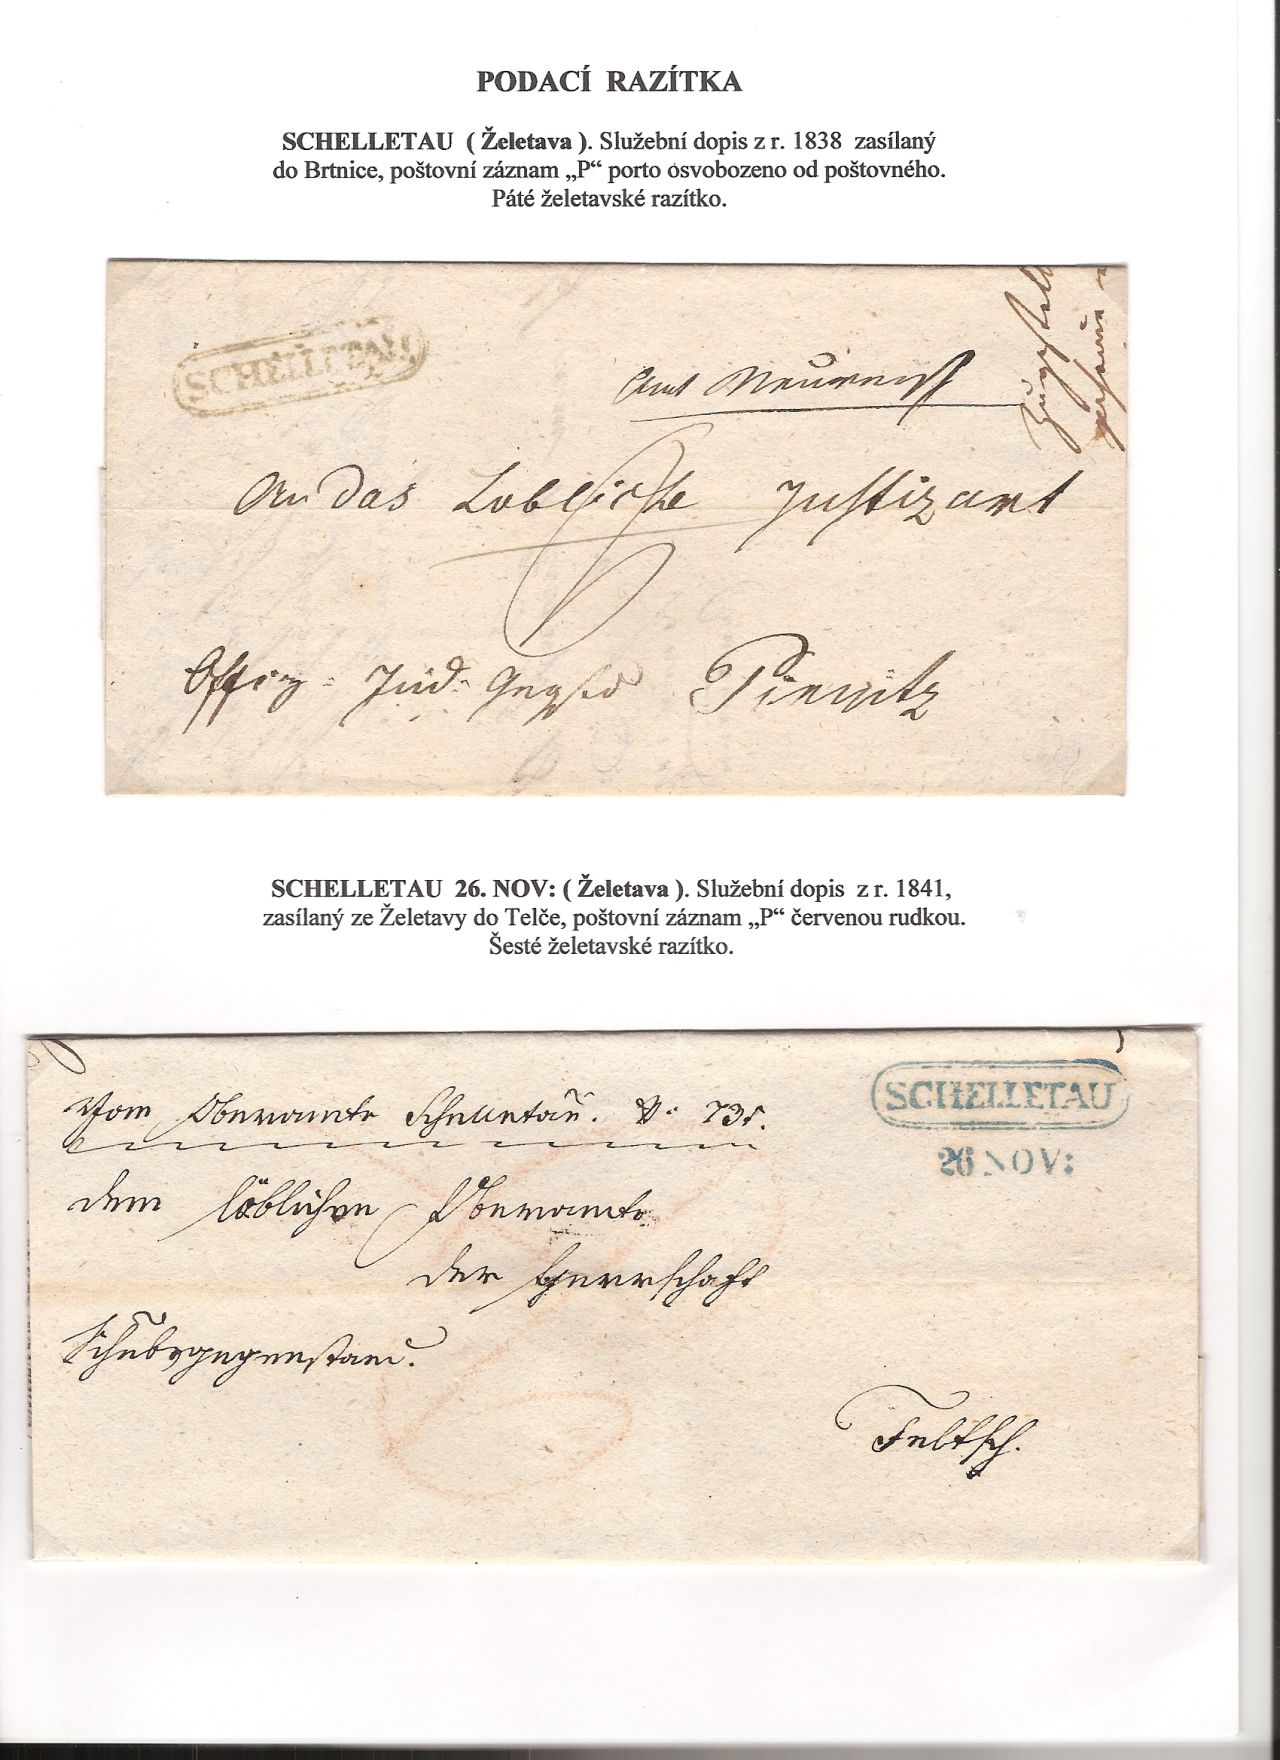 PODACÍ RAZÍTKA
SCHELLETAU ( Želetava ). Služební dopis z r. 1838 zasílaný
do Brtnice, poštovní záznam „P“ porto osvobozeno od poštovného.
Páté želetavské razítko.
SCHELLETAU
Amt
An das Löbliche Justizamt
Pirnitz
SCHELLETAU 26. NOV: ( Želetava ). Služební dopis z r. 1841,
zasílaný ze Želetavy do Telče, poštovní záznam „P“ červenou rudkou.
Šesté želetavské razítko.
SCHELLETAU
26 NOV:
Vom Oberamte Schelletau.
dem löblichen Oberamte
der Herrschaft
Schubsgegenstand.
Teltsch.